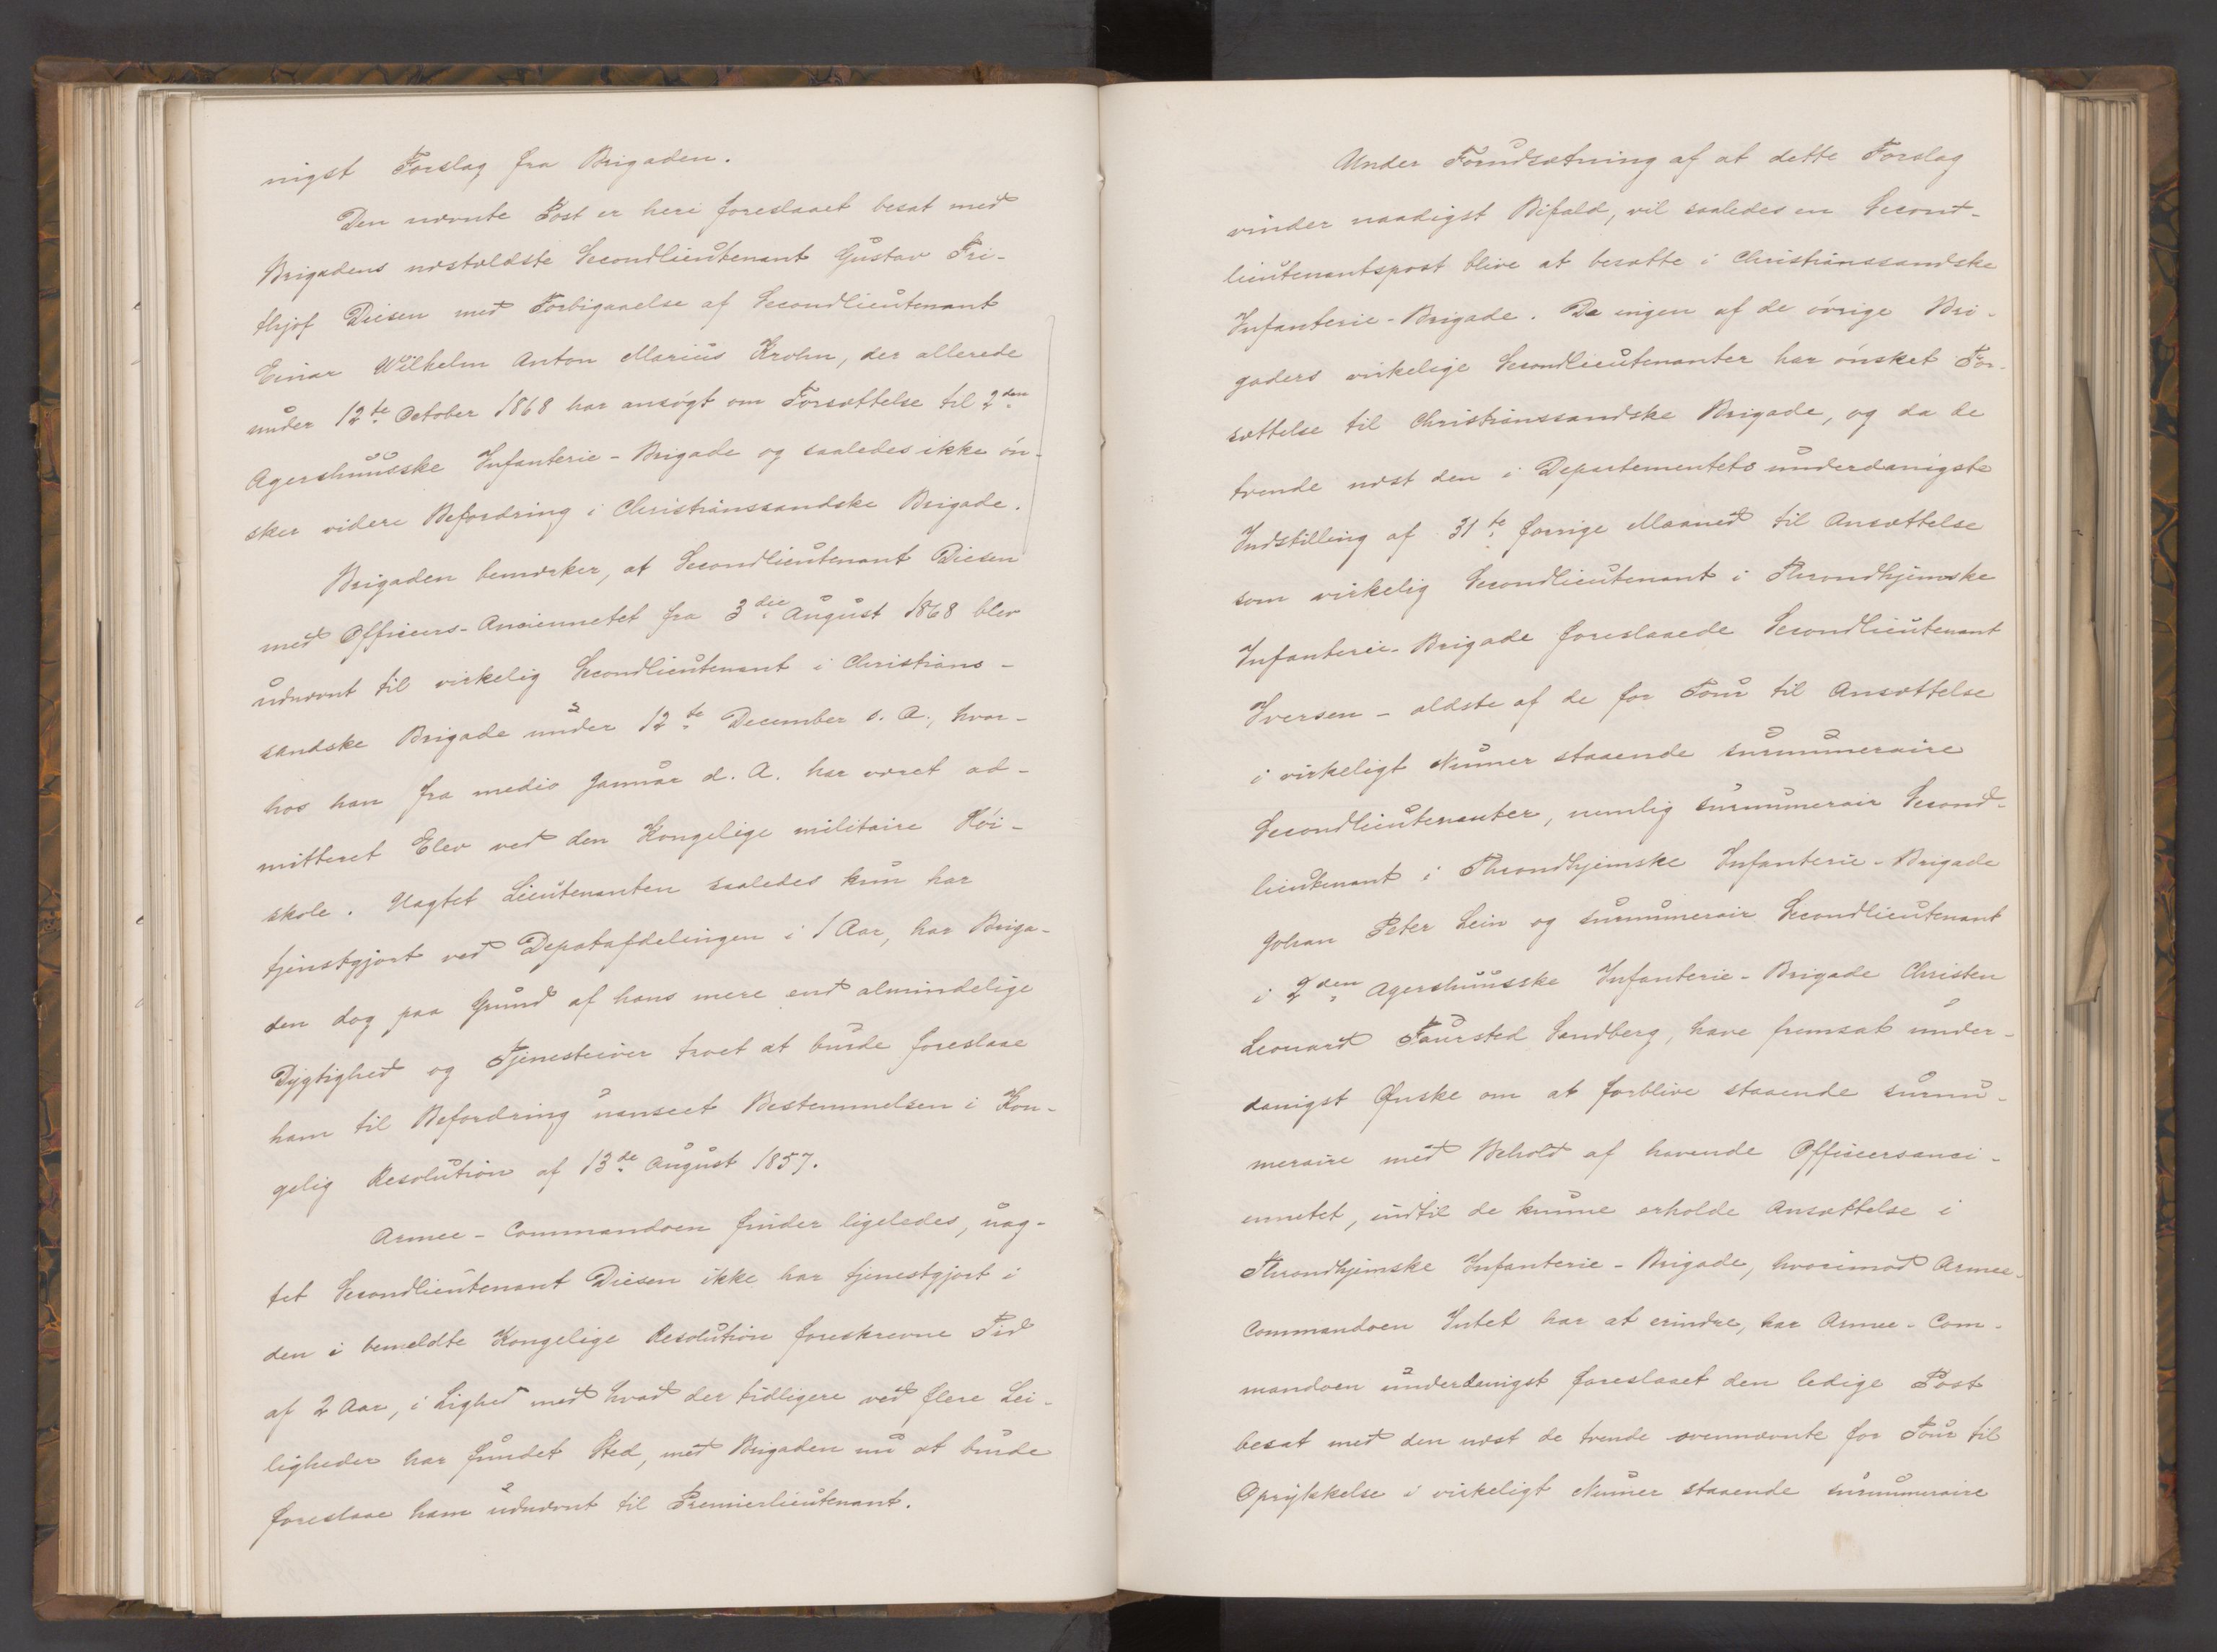 nigst Forslag fra Brigaden.
Den nævnte Post er heri foreslaaet besat med
Brigadens næstældste Secondlieutenant Gustav Fri-
thjof Diesen med Forbigaaelse af Secondlieutenant
Einar Wilhelm Anton Marius Krohn, der allerede
under 12te October 1868 har ansøgt om Forsættelse til 2den
Agershuusske Infanterie-Brigade og saaledes ikke øn-
sker videre Befordring i Christianssandske Brigade.
Brigaden bemærker, at Secondlieutenant Diesen
med Officers-Anciennetet fra 3die August 1868 blev
udnævnt til virkelig Secondlieutenant i Christians-
sandske Brigade under 12te December s. A., hvor-
hos han fra medio Januar d. A. har været ad-
mitteret Elev ved den Kongelige militaire Høi-
skole. Uagtet Lieutenanten saaledes kun har
tjenstgjort ved Depotafdelingen i 1 Aar, har Briga-
den dog paa Grund af hans mere end almindelige
Dygtighed og Tjenesteiver troet at burde foreslaae
ham til Befordring uanseet Bestemmelsen i Kon-
gelig Resolution af 13de August 1857.
Armee-Commandoen finder ligeledes, uag-
tet Secondlieutenant Diesen ikke har tjenestgjort i
den i bemeldte Kongelige Resolution foreskrevne Tid
af 2 Aar, i Lighed med hvad der tidligere ved flere Lei-
ligheder har fundet Sted, med Brigaden nu at burde
foreslaae ham udnævnt til Premierlieutenant.
Under Forudsætning af at dette Forslag
vinder naadigst Bifald, vil saaledes en Second-
lieutenantspost blive at besætte i Christianssandske
Infanterie-Brigade. Da ingen af de øvrige Bri-
gaders virkelige Secondlieutenanter har ønsket For-
sættelse til Christianssandske Brigade, og da de
tvende næst den i Departementets underdanigste
Indstilling af 31te forrige Maaned til Ansættelse
som virkelig Secondlieutenant i Throndhjemske
Infanterie-Brigade foreslaaede Secondlieutenant
Iversen - ældste af de for Tour til Ansættelse
i virkeligt Numer staaende surnumeraire
Secondlieutenanter, nemlig surnumerair Second-
lieutenant i Throndhjemske Infanterie-Brigade
Johan Peter Lein og surnumerair Secondlieutenant
i 2den Agershuusske Infanterie-Brigade Christen
Leonard Faursted Sandberg, have fremsat under-
danigst Ønske om at forblive staaende surnu-
meraire med Behold af havende Officeersanci-
ennetet, indtil de kunne erholde Ansættelse i
Throndhjemske Infanterie-Brigade, hvorimod Armee-
Commandoen Intet har at erindre, har Armee-Com-
mandoen underdanigst foreslaaet den ledige Post
besat med den næst de tvende ovennævnte for Tour til
Oprykkelse i virkeligt Numer staaende surnumeraire